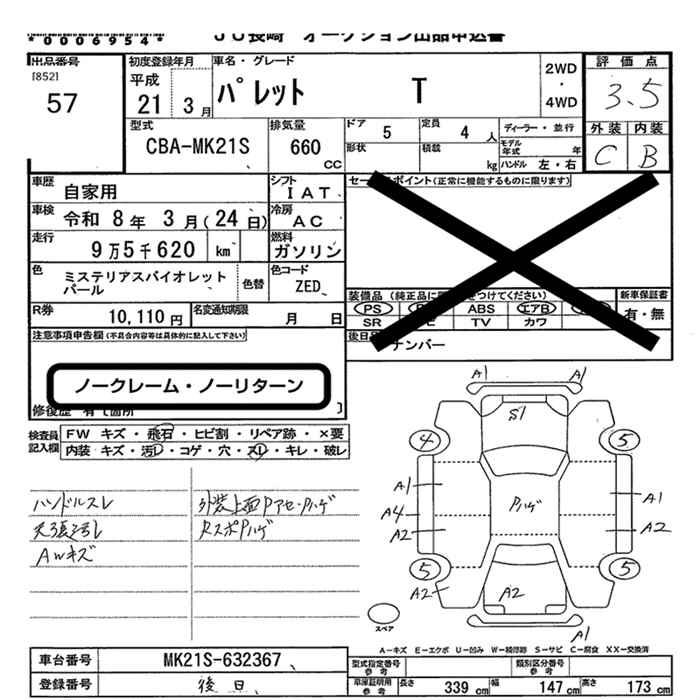 *0006954*
JU長崎 オークション出品申込書
出品番号
[852]
57
初度登録年月
平成
21 3月
車名・グレード
パレット T
2WD
・
4WD
評価点
3.5
外装 内装
C B
型式
CBA-MK21S
排気量
660
CC
ドア 5
定員 4人
ディーラー・並行
形状
積載 kg
モデル年式 年
ハンドル 左・右
車歴 自家用
シフト IAT
車検 令和 8年 3月(24日)
冷房 AC
走行 9万5千620 km
燃料 ガソリン
色 ミステリアスバイオレットパール
色替
色コード ZED
R券 10,110円
名変通知期限 月 日
セールスポイント(正常に機能するものに限ります)
装備品
PS ABS エアB
SR TV カワ
新車保証書
有・無
後日
ナンバー
注意事項申告欄(不具合内容等は具体的に記入して下さい)
ノークレーム・ノーリターン
修復歴 有て箇所
検査員記入欄
FW キズ・飛石・ヒビ割・リペア跡・×要
内装 キズ・汚レ・コゲ・穴・スレ・キレ・破レ
ハンドルスレ
天張汚レ
AWキズ
外装上面Pアセ・Pハゲ
RスポPハゲ
A1 A1
S1
4 5
A1 Pハゲ A1
A4
A2 A2
5 5
A2 A2
A1
スペア
A-キズ E-エクボ U-凹み W-補修跡 S-サビ C-腐食 XX-交換済
車台番号 MK21S-632367
登録番号 後日
型式指定番号 参考
類別区分番号 参考
車庫証明用 参考
長さ 339cm 幅 147cm 高さ 173cm